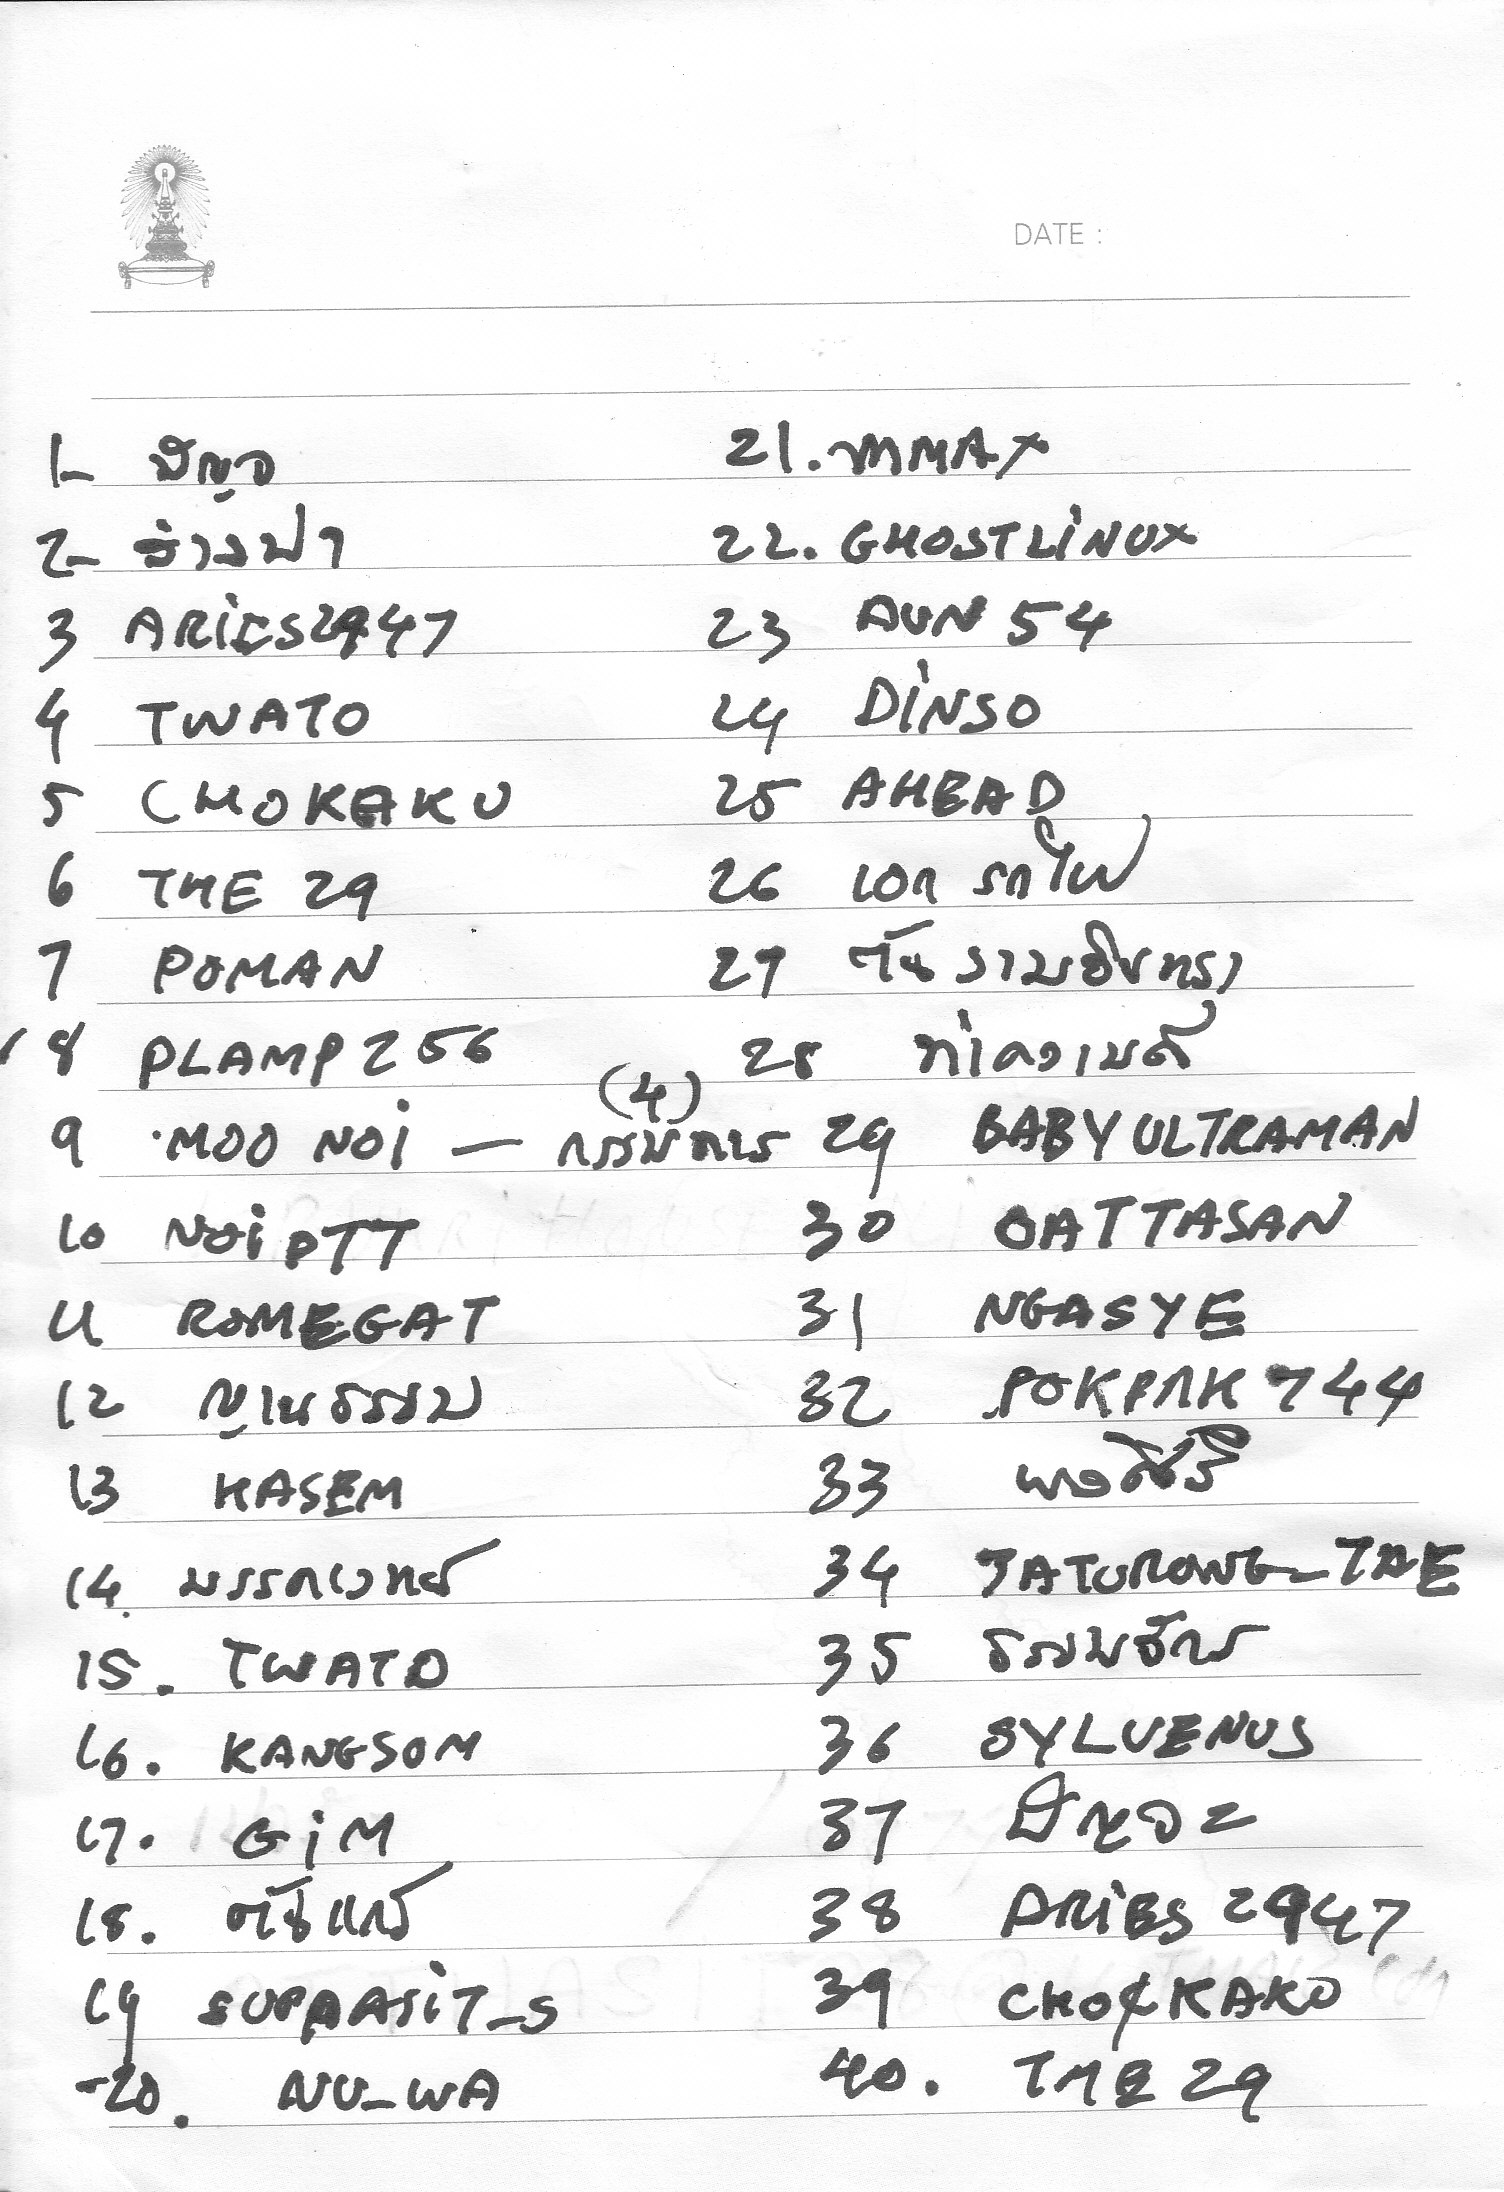 DATE :
1- ปัญจ
2- ช่างฟ้า
3 ARIES2947
4 TWATO
5 CHOKAKU
6 THE 29
7 POMAN
8 PLAMP256
9 MOO NOI — กรรมการ (4)
10 NOI PTT
11 ROMEGAT
12 ญาณธรรม
13 KASEM
14.
15. TWATO
16. KANGSOM
17. GIM
18.
19 SUPARSIT_S
20. NU_WA
21. MMAX
22. GHOSTLINUX
23 AUN 54
24 DINSO
25 AHEAD
26 เอก รถไฟ
27 รามอินทรา
28
29 BABYULTRAMAN
30 OATTASAN
31 NGASYE
32 POKPAK 744
33
34 JATURONG_TAE
35
36 SYLVENUS
37 ปัญจะ
38 ARIES 2947
39 CHOKKAKO
40. THE 29